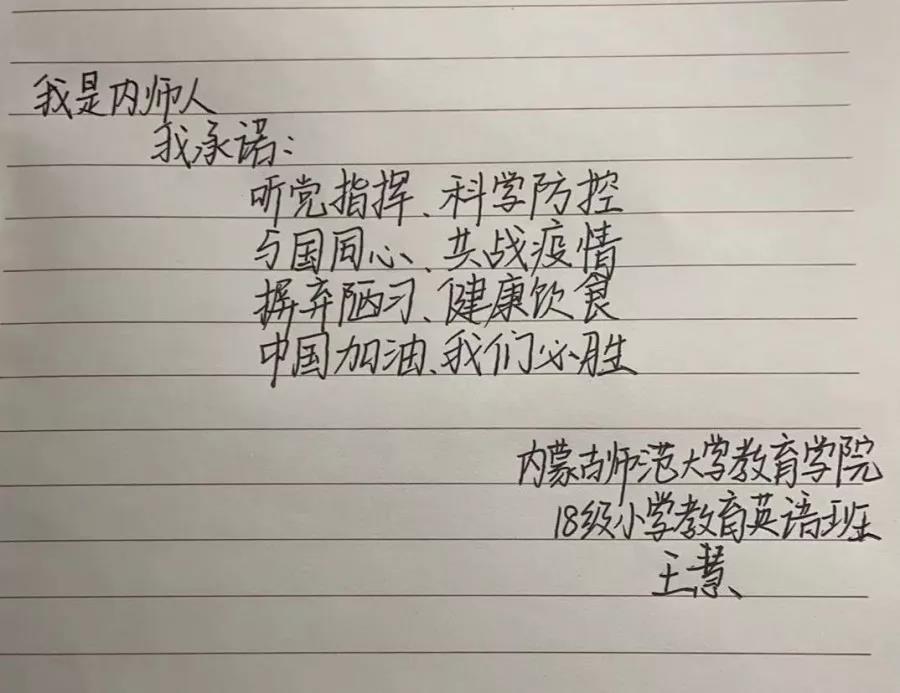 我是内师人
我承诺:
听党指挥、科学防控
与国同心、共战疫情
摒弃陋习、健康饮食
中国加油、我们必胜
内蒙古师范大学教育学院
18级小学教育英语班
王慧